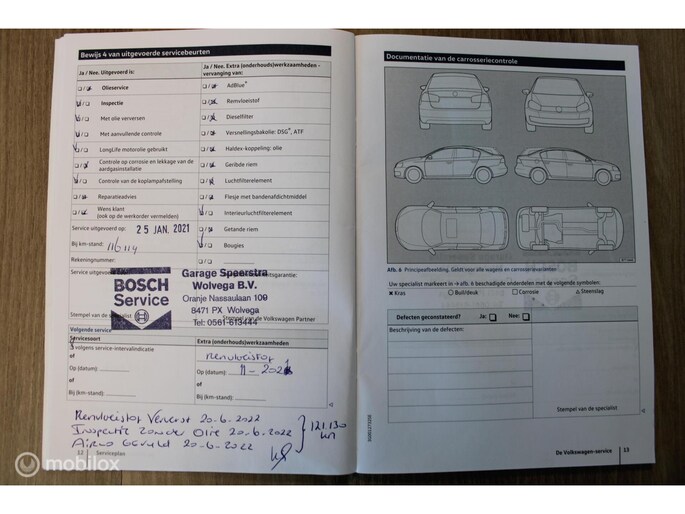 Bewijs 4 van uitgevoerde servicebeurten
Ja / Nee. Uitgevoerd is:
Olieservice
Inspectie
Met olie verversen
Met aanvullende controle
LongLife motorolie gebruikt
Controle op corrosie en lekkage van de
aardgasinstallatie
Controle van de koplampafstelling
Reparatieadvies
Wens klant
(ook op de werkorder vermelden)
Service uitgevoerd op: 25 JAN. 2021
Bij km-stand: 116.114
Rekeningnummer:
Service uitgevoerd
Stempel van de specialist
Ja / Nee. Extra (onderhouds)werkzaamheden -
vervanging van:
AdBlue®
Remvloeistof
Dieselfilter
Versnellingsbakolie: DSG®, ATF
Haldex-koppeling: olie
Geribde riem
Luchtfilterelement
Flesje met bandenafdichtmiddel
Interieurluchtfilterelement
Getande riem
Bougies
BOSCH
Service
Garage Speerstra
Wolvega B.V.
Oranje Nassaulaan 109
8471 PX Wolvega
Tel: 0561-613444
Stempel van de Volkswagen Partner
Volgende service
Servicesoort
volgens service-intervalindicatie
of
Op (datum):
of
Bij (km-stand):
Extra (onderhouds)werkzaamheden
Remvloeistof
of
Op (datum):
of
Bij (km-stand):
Remvloeistof Ververst 20-6-2022
Inspectie zonder Olie 20-6-2022
Airco Gevuld 20-6-2022
121.130
km
12 Serviceplan
Documentatie van de carrosseriecontrole
Afb. 6 Principeafbeelding. Geldt voor alle wagens en carrosserievarianten
Uw specialist markeert in → afb. 6 beschadigde onderdelen met de volgende symbolen:
Kras
Buil/deuk
Corrosie
Steenslag
Defecten geconstateerd? Ja: Nee:
Beschrijving van de defecten:
Stempel van de specialist
De Volkswagen-service 13
mobilox